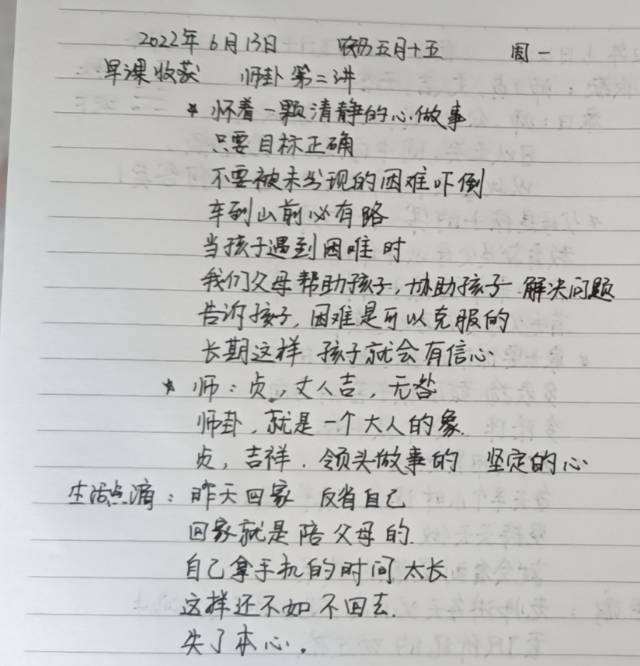 2022年6月13日 农历五月十五 周一
早课收获 师卦第二讲
* 怀着一颗清静的心做事
只要目标正确
不要被未发现的困难吓倒
车到山前必有路
当孩子遇到困难时
我们父母帮助孩子,协助孩子解决问题
告诉孩子,困难是可以克服的
长期这样 孩子就会有信心
* 师:贞,丈人吉,无咎
师卦,就是一个大人的象
贞,吉祥.领头做事的 坚定的心
生活点滴:昨天回家 反省自己
回家就是陪父母的.
自己拿手机的时间太长
这样还不如不回去.
失了本心。